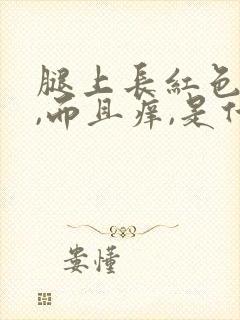 腿上長紅色
,而且痒,是什
娄懂